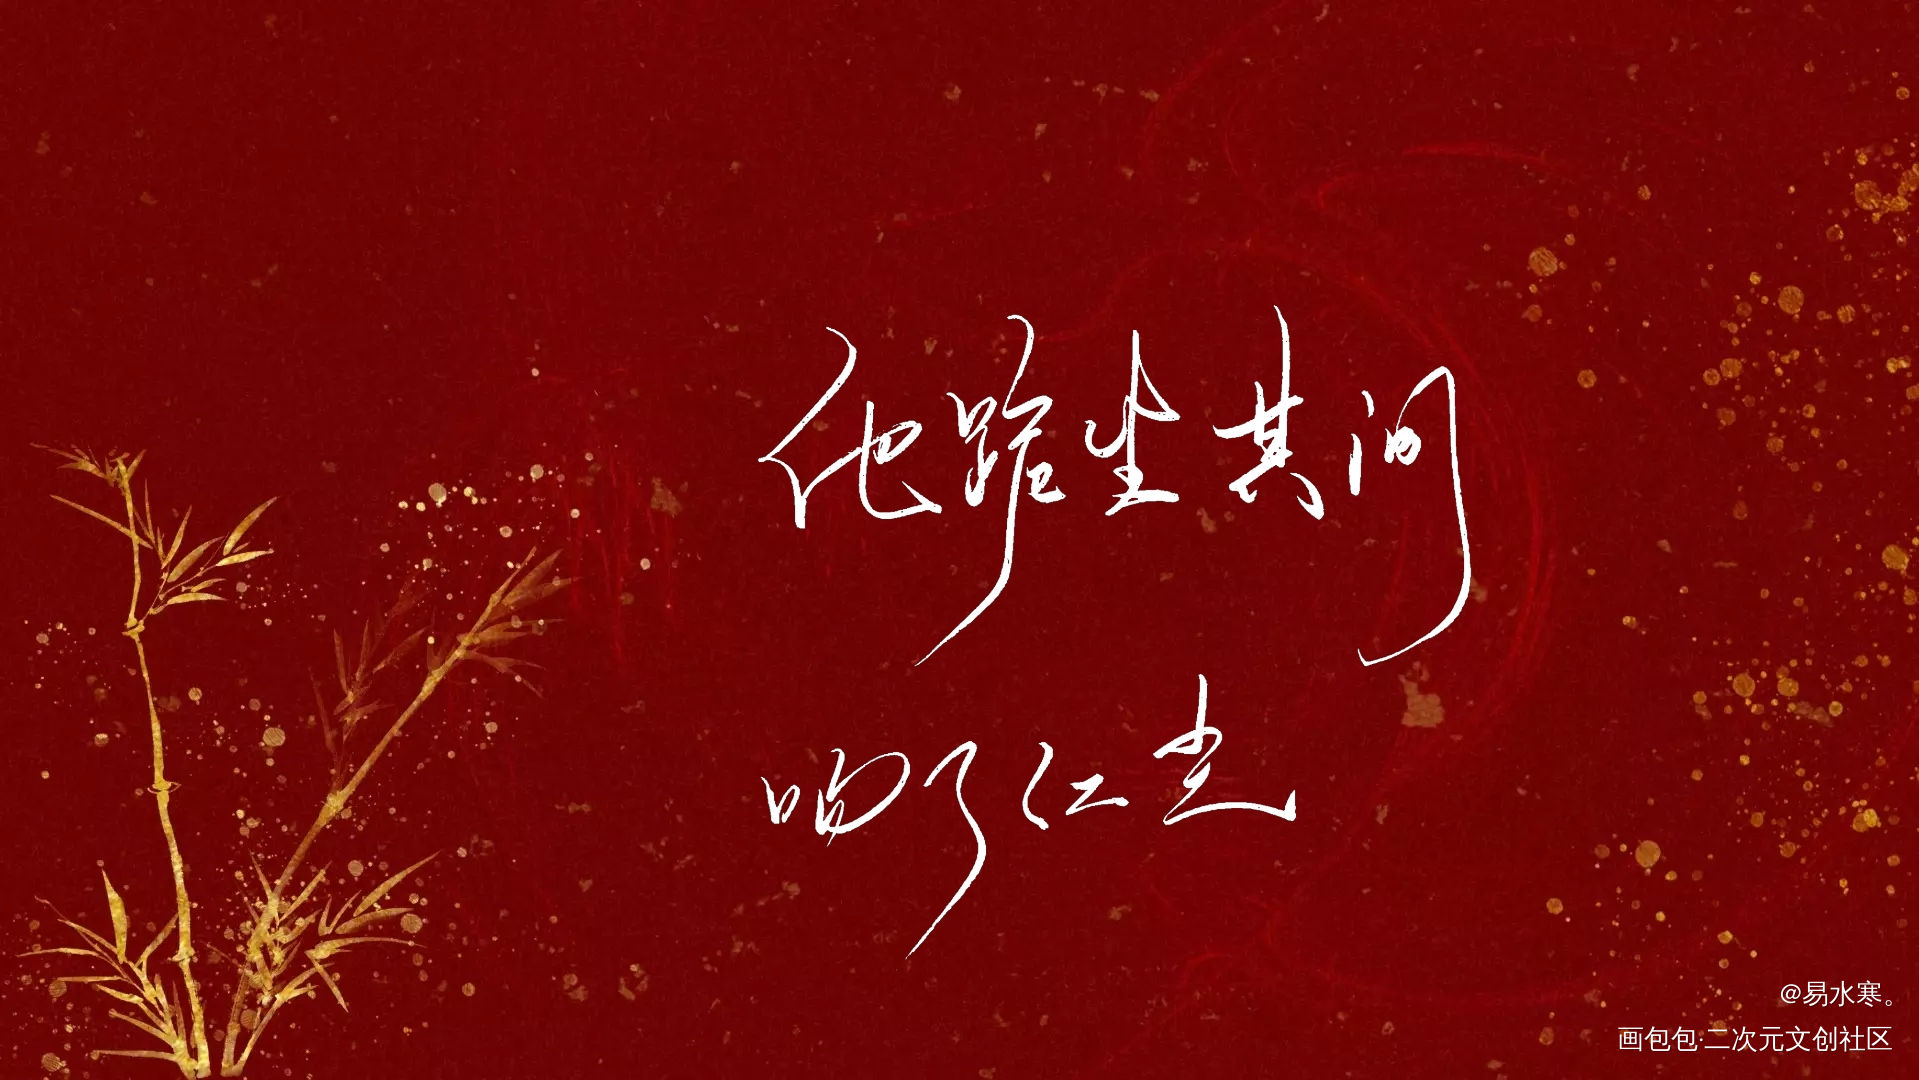 他跪坐其间
了红
@易水寒。
画包包·二次元文创社区